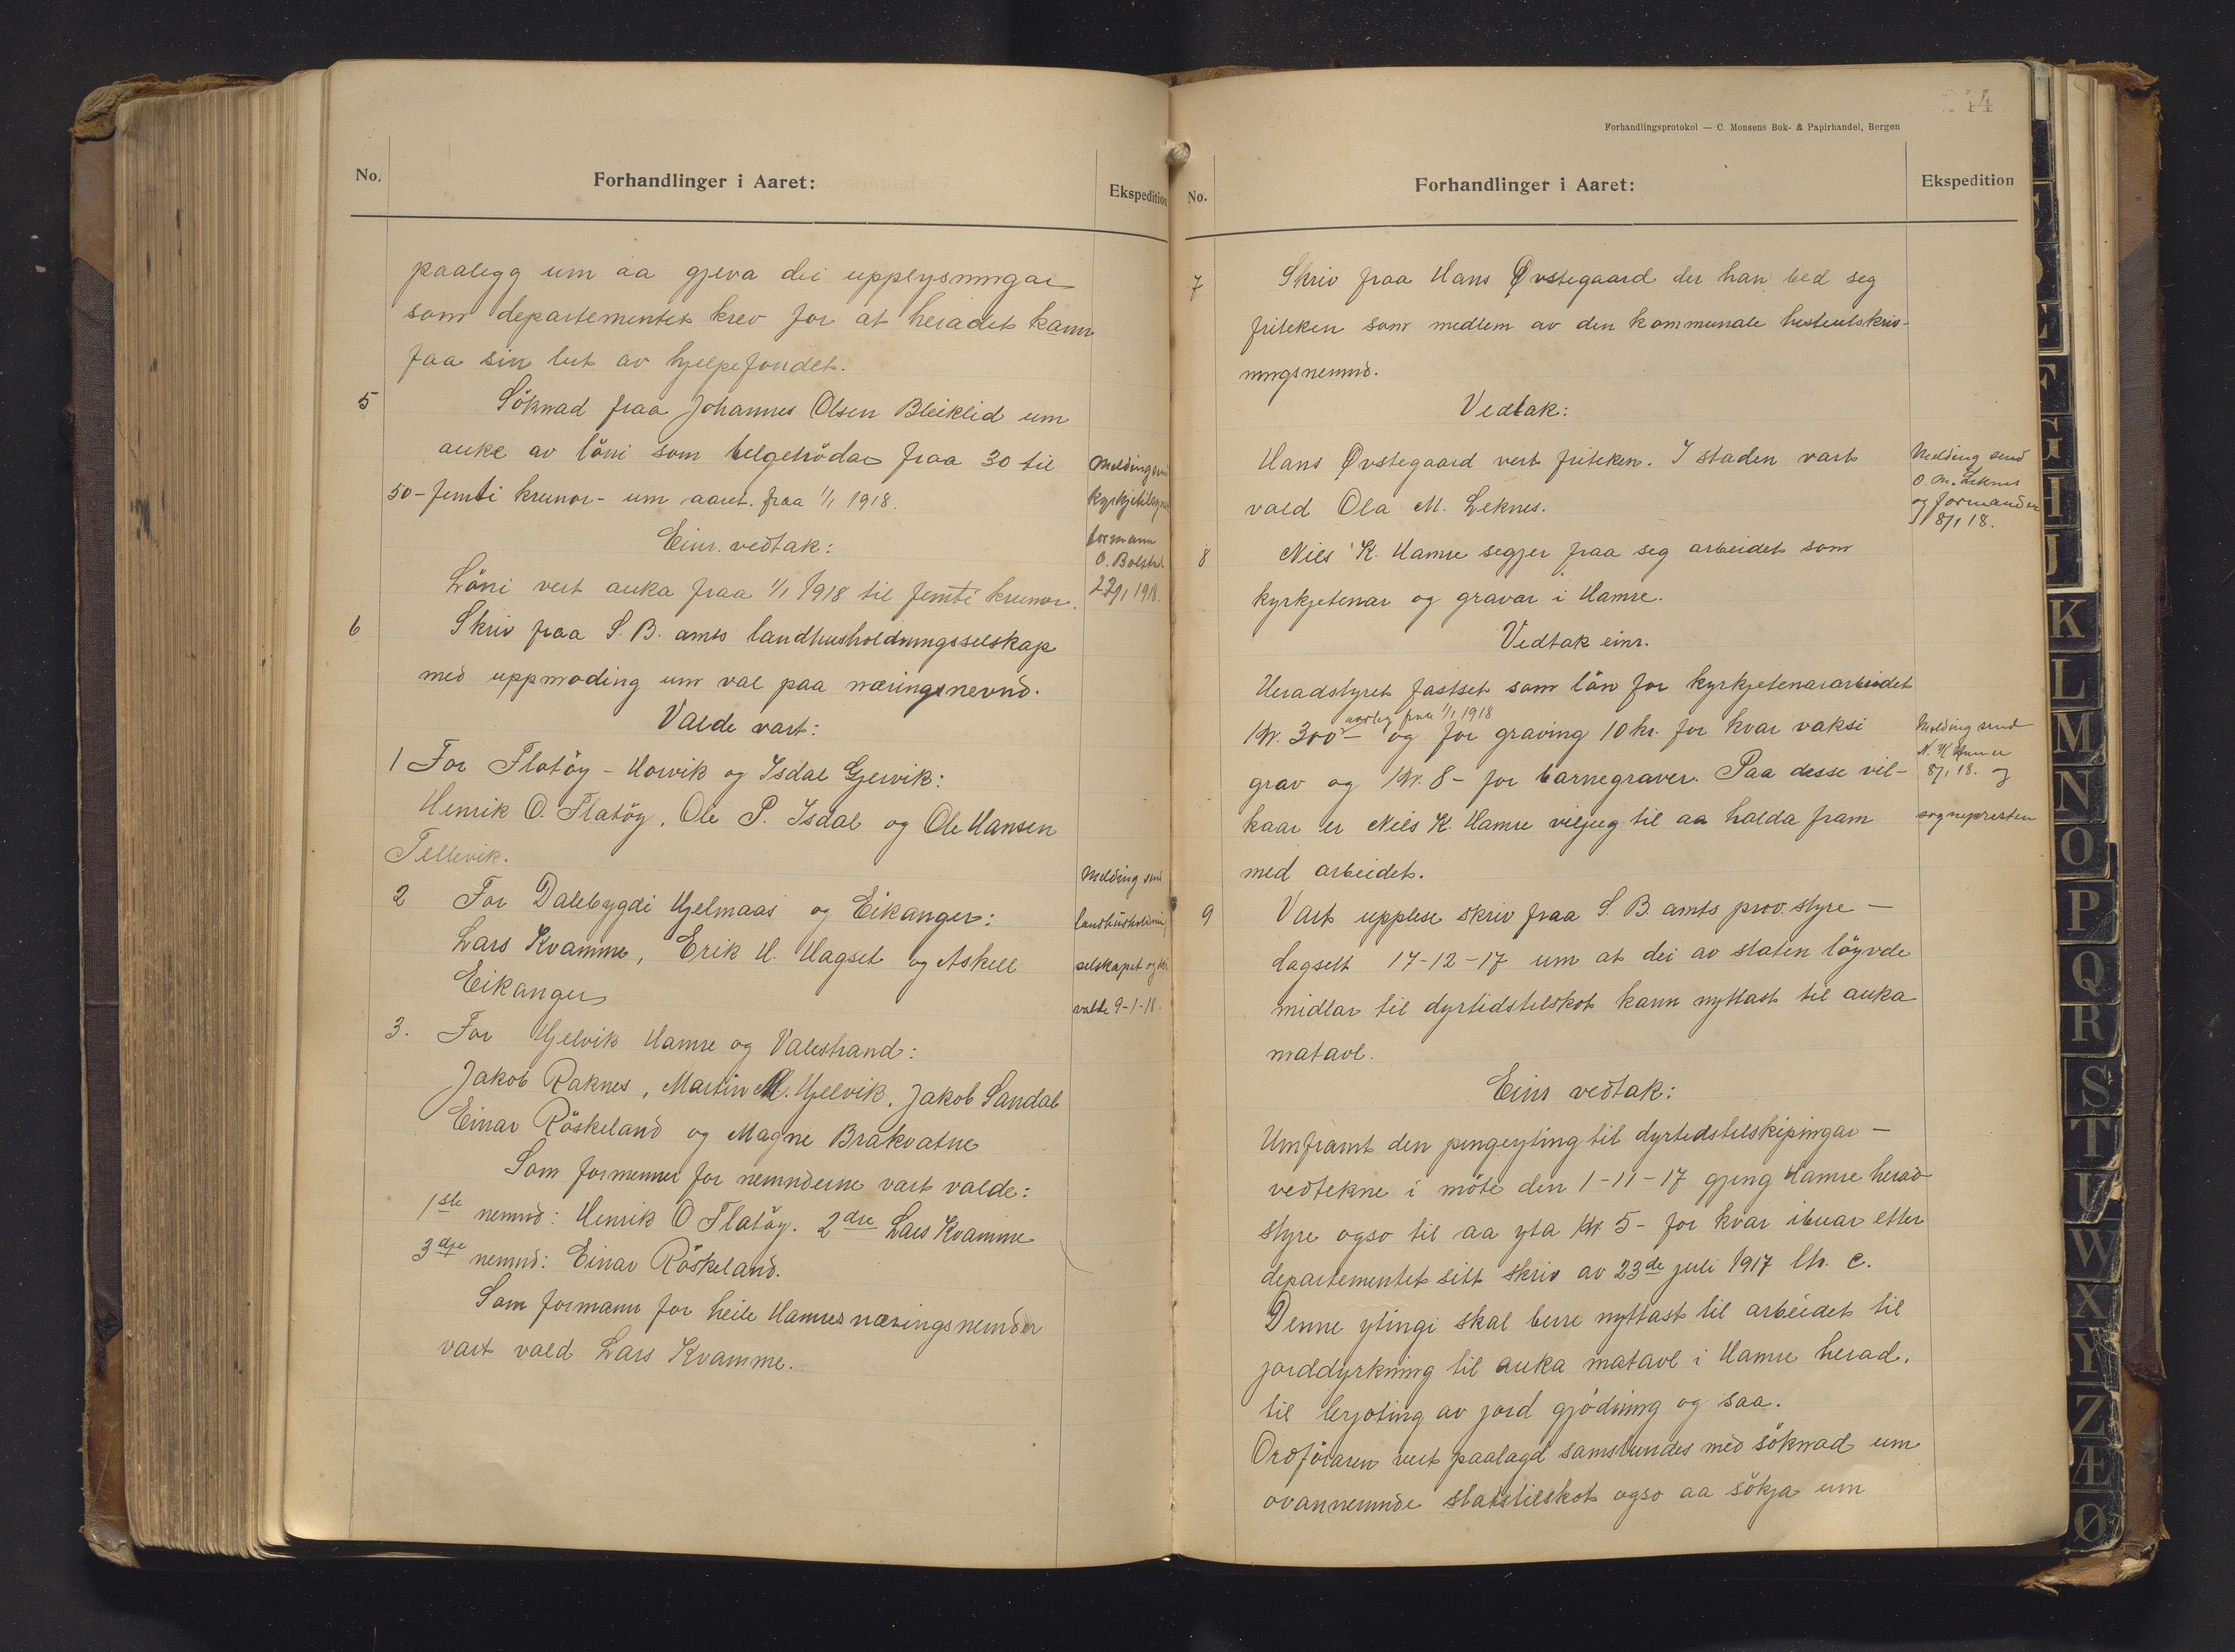 No.
Forhandlinger i Aaret:
Ekspedition
paalegg um aa gjeva dei upplysningar
som departementet krev for at heradet kann
faa sin lut av hjelpefondet.
5 Söknad fraa Johannes Olsen Bleiklid um
auke av löni som belgetrödar fraa 30 til
50 - femti krunor - um aaret. fraa 1/1 1918.
Einr. vedtak:
Löni vert auka fraa 1/1 1918 til femti krunor.
Melding
kyrkjetilsyns
formann
O. Bolstad
22/1 1918.
6 Skriv fraa S. B. amts landhusholdningsselskap
med uppmoding um val paa næringsnevnd.
Valde vart:
1 For Flatöy - Horvik og Isdal Gjervik:
Henrik O. Flatöy, Ole P. Isdal og Ole Hansen
Tellevik.
2 For Dalebygdi Hjelmaas og Eikanger:
Lars Kvamme, Erik H. Hagset og Askell
Eikanger
3. For Hjelvik Hamre og Valestrand:
Jakob Raknes, Martin M. Hjelvik, Jakob Sandal
Einar Röskeland og Magne Brakvatne
Som formenner for nemnderne vart valde:
1ste nemnd: Henrik O Flatöy. 2dre Lars Kvamme
3dje nemnd: Einar Röskeland.
Som formann for heile Hamres næringsnemnder
vart vald Lars Kvamme.
Melding send
landhusholdnings
selskapet og dei
valde 9-1-18.
44
Forhandlingsprotokol — C. Monsens Bok- & Papirhandel, Bergen
No.
Forhandlinger i Aaret:
Ekspedition
7 Skriv fraa Hans Øvstegaard der han bed seg
friteken som medlem av den kommunale hesteutskriv-
ningsnemnd.
Vedtak:
Hans Øvstegaard vert friteken. I staden vart
vald Ola M. Leknes.
Melding send
O. M. Leknes
og formanden
8/1 18.
8 Nils K. Hamre segjer fraa seg arbeidet som
kyrkjetenar og gravar i Hamre.
Vedtak einr.
Heradstyret fastset som lön for kyrkjetenararbeidet
aarleg fraa 1/1 1918
Kr. 300 - og for graving 10 kr. for kvar vaksi
grav og Kr. 8 - for barnegraver. Paa desse vil-
kaar er Nils K. Hamre viljug til aa halda fram
med arbeidet.
Melding send
N. K Hamre
8/1 18. og
sognepresten
9 Vart upplese skriv fraa S. B. amts prov. styre -
dagsett 17-12-17 um at dei av staten löyvde
midlar til dyrtidstilskot kann nyttast til auka
matavl.
Einr vedtak:
Umframt den pengeyting til dyrtidstilskipingar -
vedtekne i möte den 1-11-17 gjeng Hamre herad-
styre ogso til aa yta Kr 5 - for kvar ibuar etter
departementet sitt skriv av 23de juli 1917 ltr. c.
Denne ytingi skal berre nyttast til arbeidet til
jorddyrkning til auka matavl i Hamre herad.
til brjoting av jord gjödning og saa.
Ordföraren vert paalagd samstundes med söknad um
ovannemnde statstilskot ogso aa sökja um
G
H
I
J
K
L
M
N
O
P
Q
R
S
T
U
W
X
Y
Z
Æ
Ø